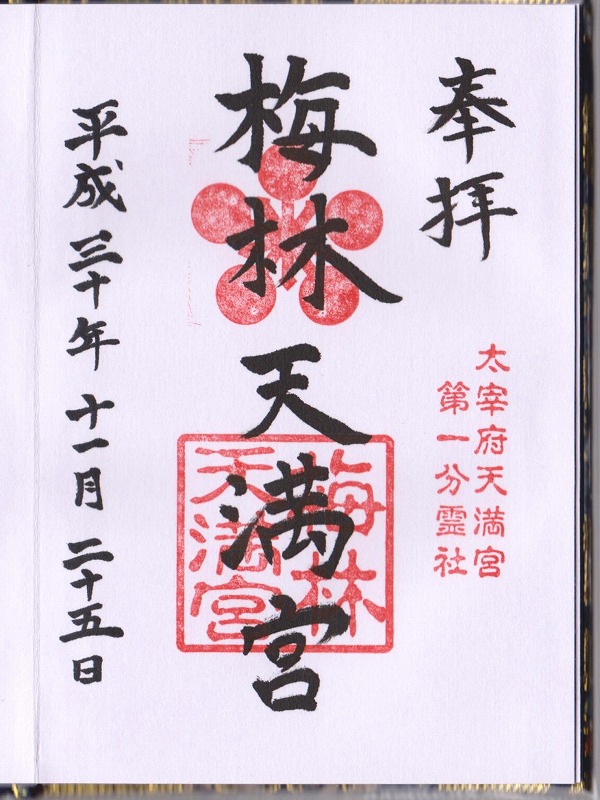 奉拝
太宰府天満宮
第一分霊社
梅林天満宮
梅林
天満宮
平成三十年十一月二十五日